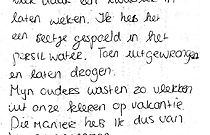 laten weken. Ik heb het
een beetje gespoeld in het
persil water. Toen uitgewrongen
en laten drogen.
Mijn ouders wasten zo vlekken
uit onze kleren op vakantie
Die manier heb ik dus van